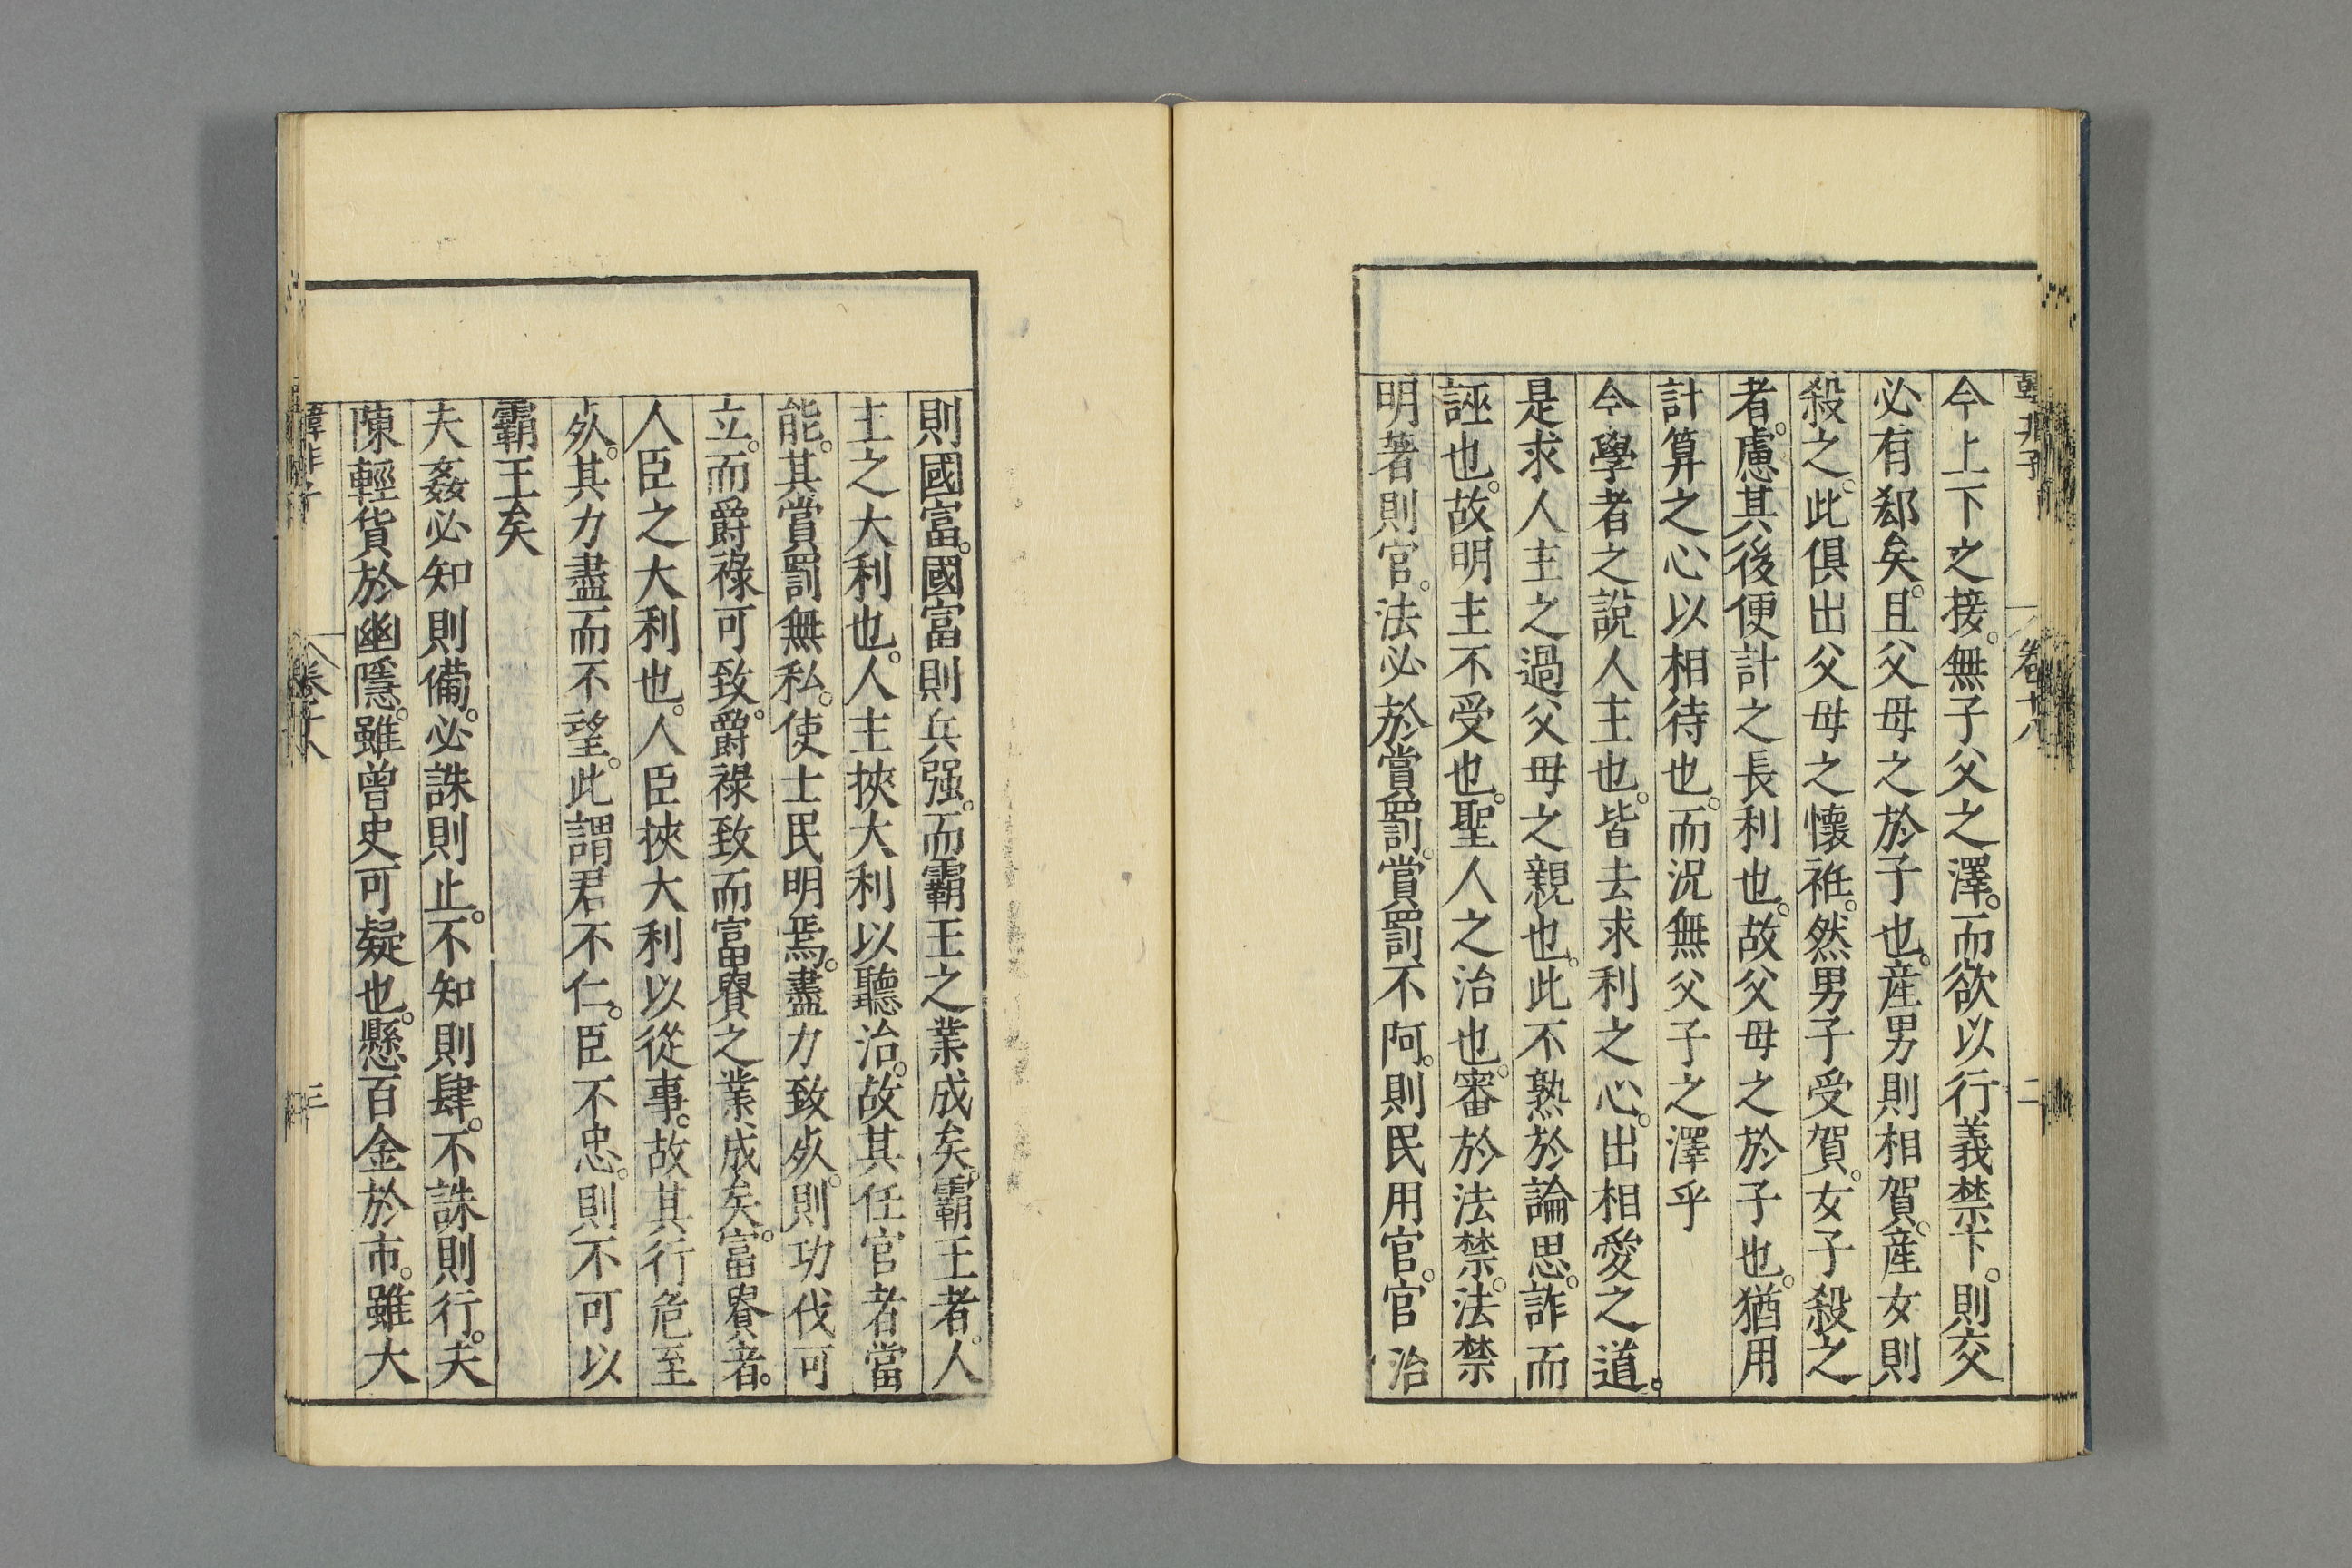 韓非子 卷十八 二
今上下之接。無子父之澤。而欲以行義禁下。則交
必有郄矣。且父母之於子也。産男則相賀。産女則
殺之。此俱出父母之懷衽。然男子受賀。女子殺之
者。慮其後便計之長利也。故父母之於子也。猶用
計算之心以相待也。而況無父子之澤乎
今學者之説人主也。皆去求利之心。出相愛之道。
是求人主之過父母之親也。此不熟於論思。詐而
誣也。故明主不受也。聖人之治也。審於法禁。法禁
明著則官。法必於賞罰。賞罰不阿。則民用官。官治
則國富。國富則兵强。而霸王之業成矣。霸王者。人
主之大利也。人主挾大利以聽治。故其任官者當
能。其賞罰無私。使士民明焉。盡力致𣦸。則功伐可
立。而爵祿可致。爵祿致而富貴之業成矣。富貴者。
人臣之大利也。人臣挾大利以從事。故其行危至
𣦸。其力盡而不望。此謂君不仁。臣不忠。則不可以
霸王矣
夫姦必知則備。必誅則止。不知則肆。不誅則行。夫
陳輕貨於幽隱。雖曾史可疑也。懸百金於市。雖大
韓非子 卷十八 三